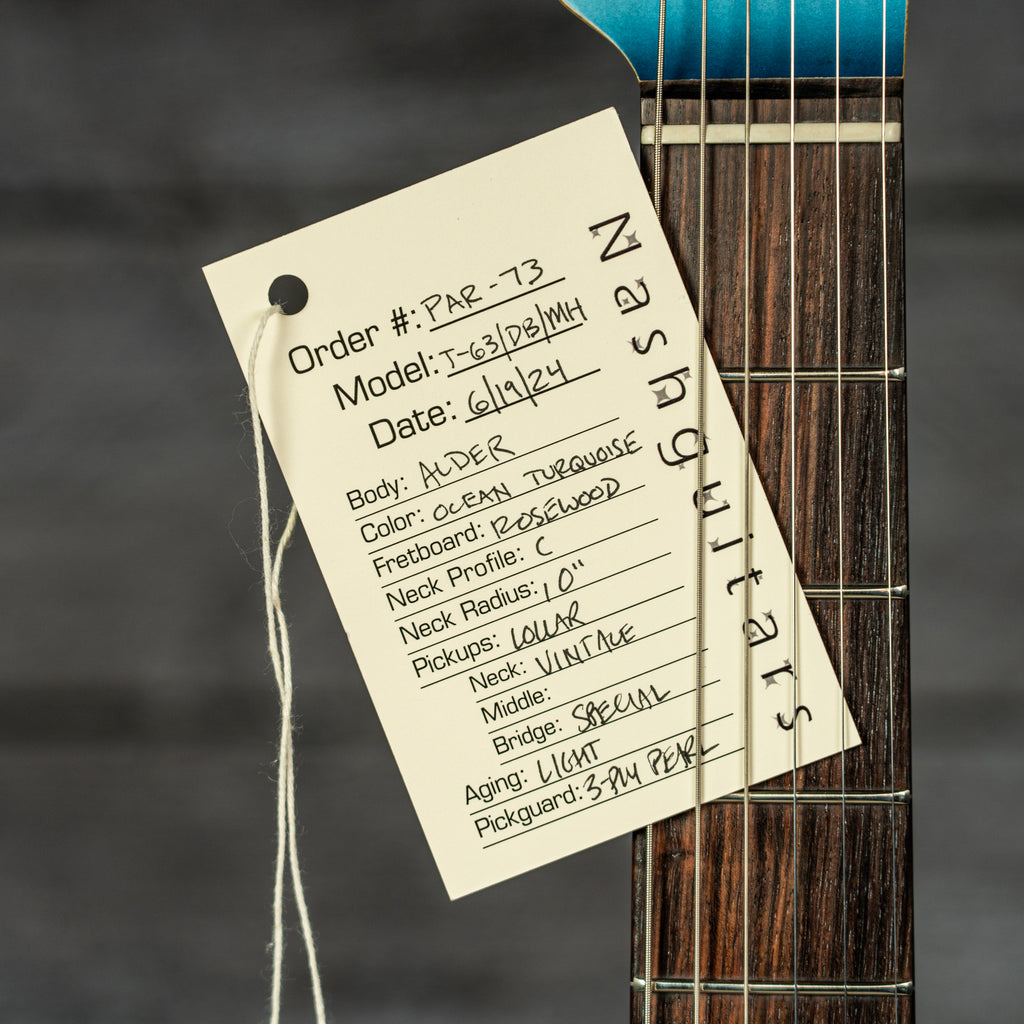 Order #: PAR-73
Model: J-63/DB/MH
Date: 6/19/24
Body: ALDER
Color: OCEAN TURQUOISE
Fretboard: ROSEWOOD
Neck Profile: C
Neck Radius: 10"
Pickups: LOLLAR
Neck: VINTAGE
Middle:
Bridge: SPECIAL
Aging: LIGHT
Pickguard: 3-PLY PEARL
Nash guitars